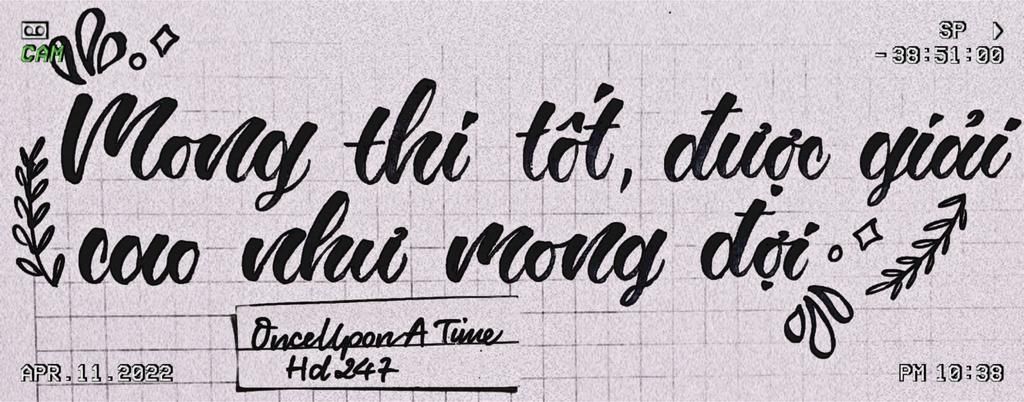 CAM
SP
-38:51:00
Mong thi tốt, được giải
cao như mong đợi
OnceUponA Time
Hd 247
APR.11.2022
PM 10:38